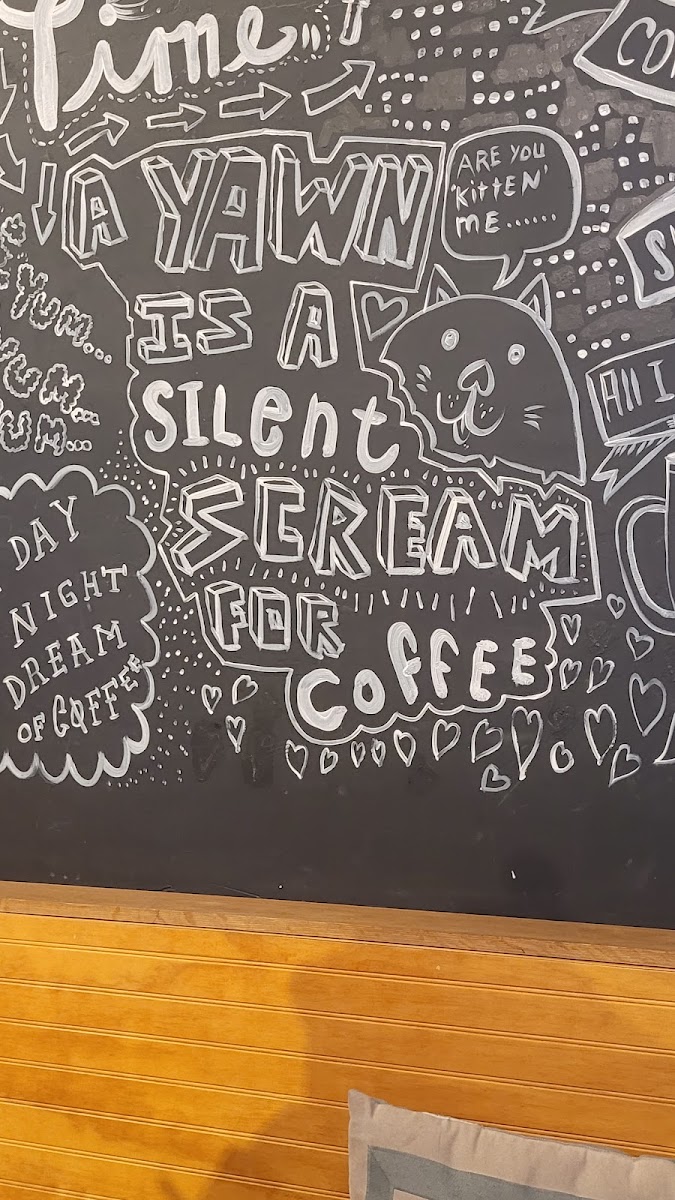 Time
ARE YOU
'KITTEN'
ME......
A YAWN
IS A
SILent
SCREAM
FOR
COFFEE
YUM...
YUM...
UM...
DAY
NIGHT
DREAM
OF COFFEE
All I